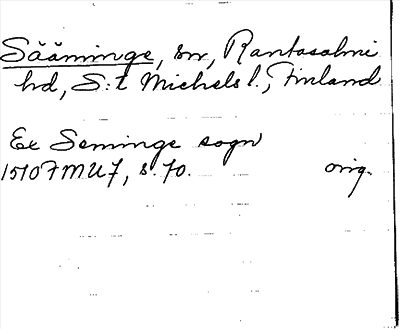 Sääminge, sn, Rantasalmi
hd, S:t Michels l., Finland
Ex Seminge sogn
1510 FMU 7, s. 70. orig.